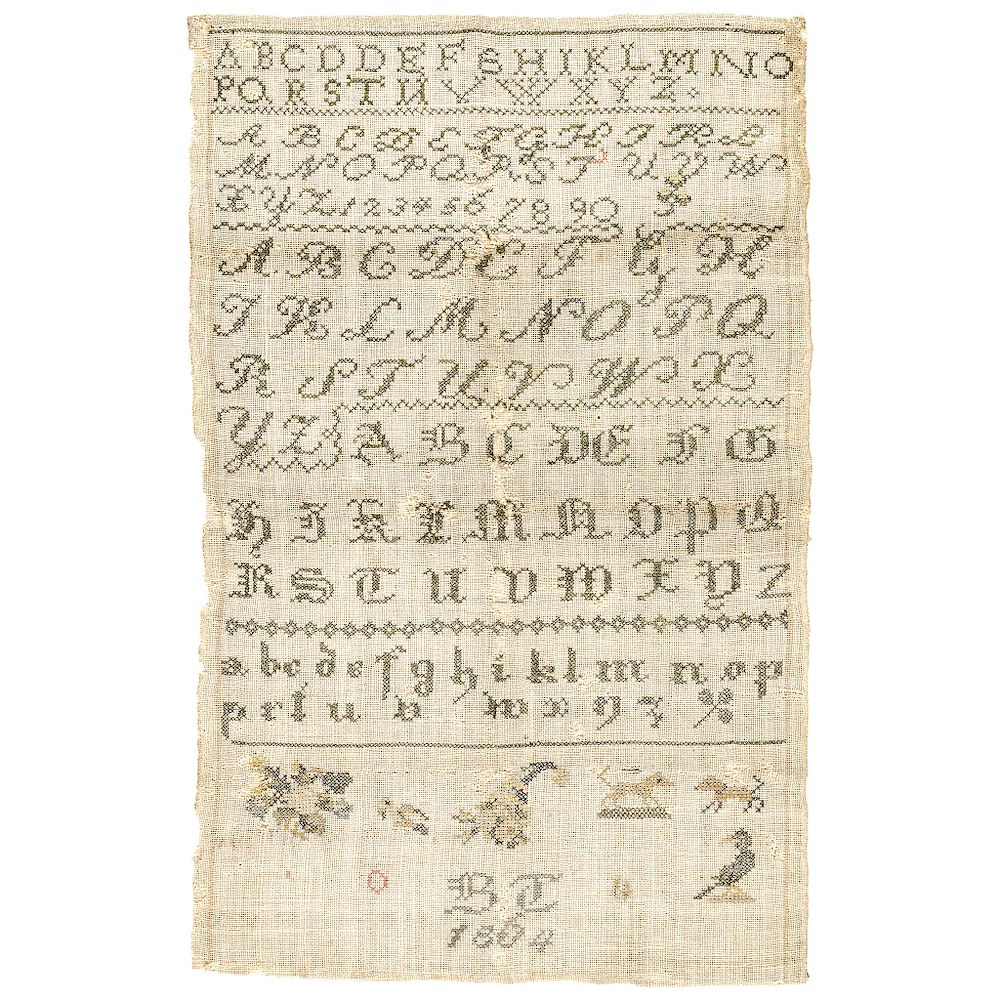 A B C D D E F S H I K L M N O
P Q R S T U V W X Y Z .
A B C D E F G H I K L
M N O P Q R S T U V W
X Y Z 1 2 3 4 5 6 7 8 9 0
A B C D E F G H
I K L M N O P Q
R S T U V W X
Y Z A B C D E F G
H I K L M N O P Q
R S T U V W X Y Z
a b c d e f g h i k l m n o p
p r s t u v w x y z
B T
1804